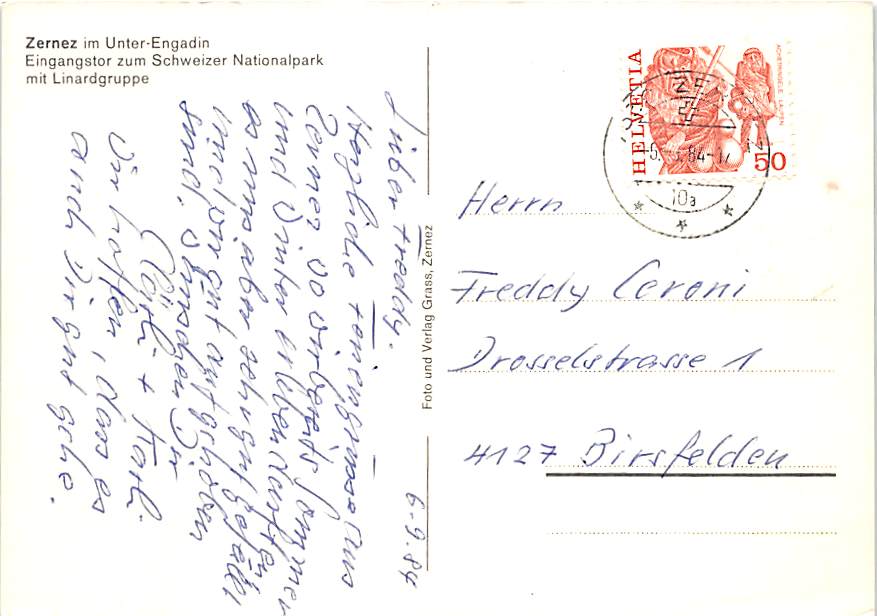 Zernez im Unter-Engadin
Eingangstor zum Schweizer Nationalpark
mit Linardgruppe
HELVETIA
ACHETRINGELE LAUPEN
50
84-17
10a
Foto und Verlag Grass, Zernez
6-9.84
Lieber Freddy.
Herzliche Feriengrüsse aus
Zernez wo wir bereits Sommer
und Winter erleben durften,
es uns aber sehr gut gefällt
und wir gut aufgehoben
sind. Wünschen Dir
Wir hoffen, dass es
auch Dir gut gehe.
Klärli + Karli
Herrn
Freddy Coroni
Drosselstrasse 1
4127 Birsfelden